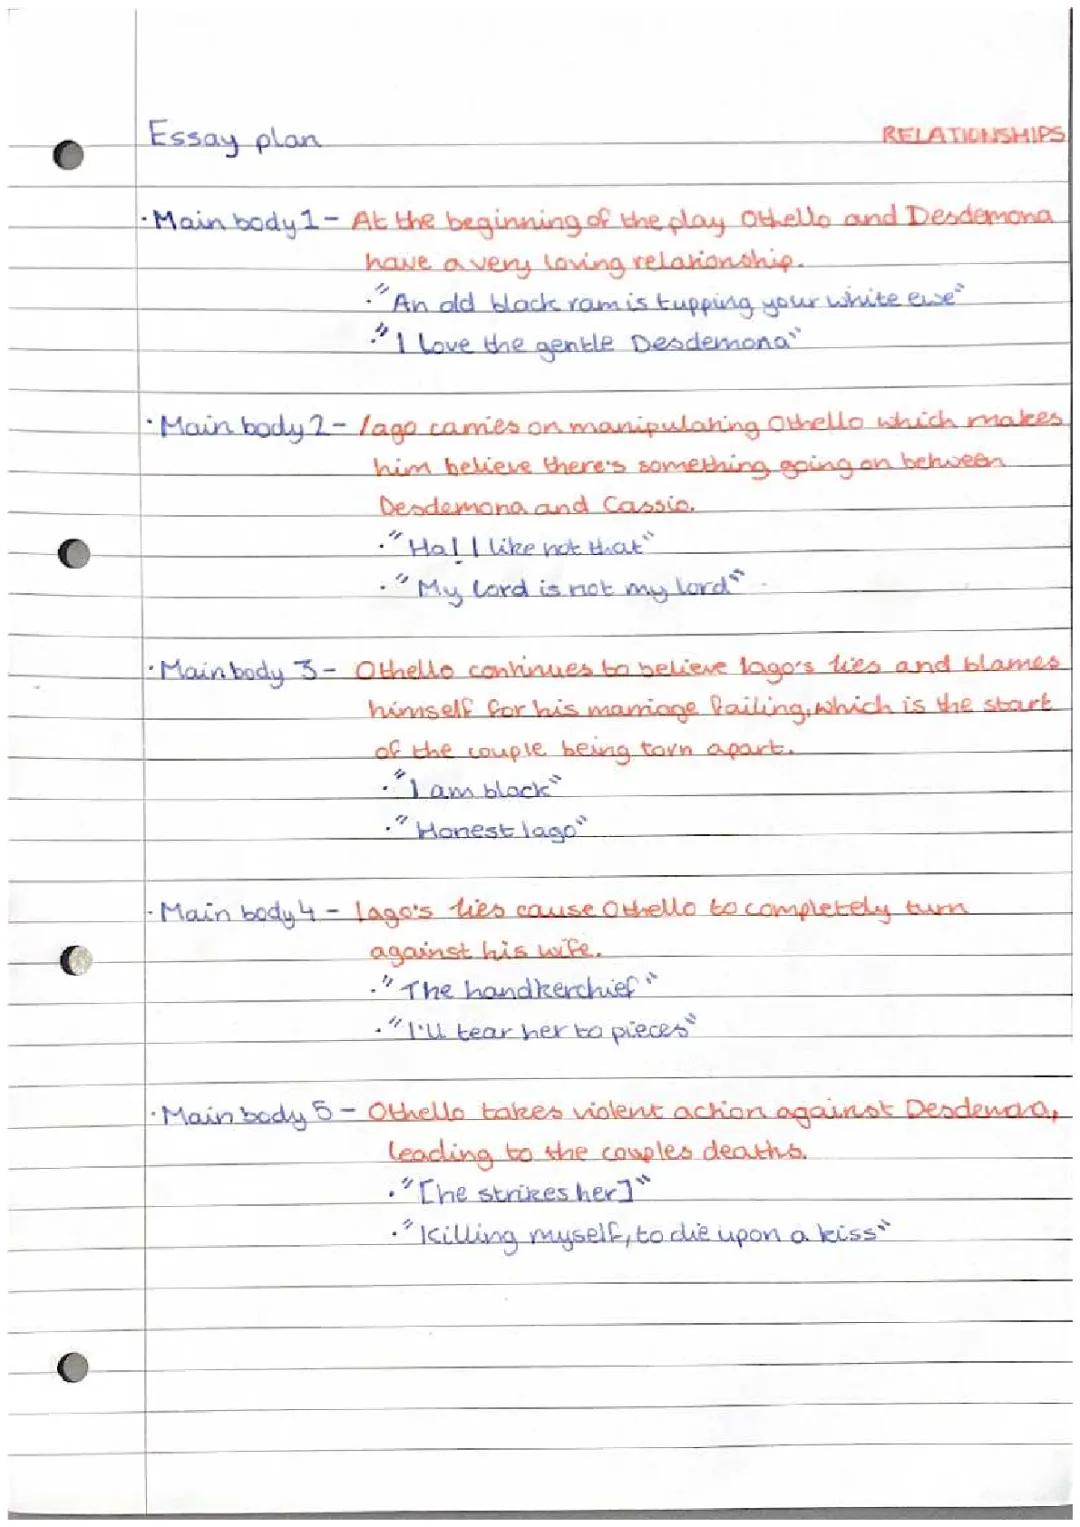 Essay plan
RELATIONSHIPS
· Main body 1 - At the beginning of the play Othello and Desdemona
have a very loving relationship.
· "An old black ram is tupping your white ewe"
· "I love the gentle Desdemona"
· Main body 2 - Iago carries on manipulating Othello which makes
him believe there's something going on between
Desdemona and Cassio.
· "Ha! I like not that"
· "My lord is not my lord"
· Main body 3 - Othello continues to believe Iago's lies and blames
himself for his marriage failing, which is the start
of the couple being torn apart.
· "I am black"
· "Honest Iago"
· Main body 4 - Iago's lies cause Othello to completely turn
against his wife.
· "The handkerchief"
· "I'll tear her to pieces"
· Main body 5 - Othello takes violent action against Desdemona,
leading to the couples deaths.
· "[he strikes her]"
· "Killing myself, to die upon a kiss"